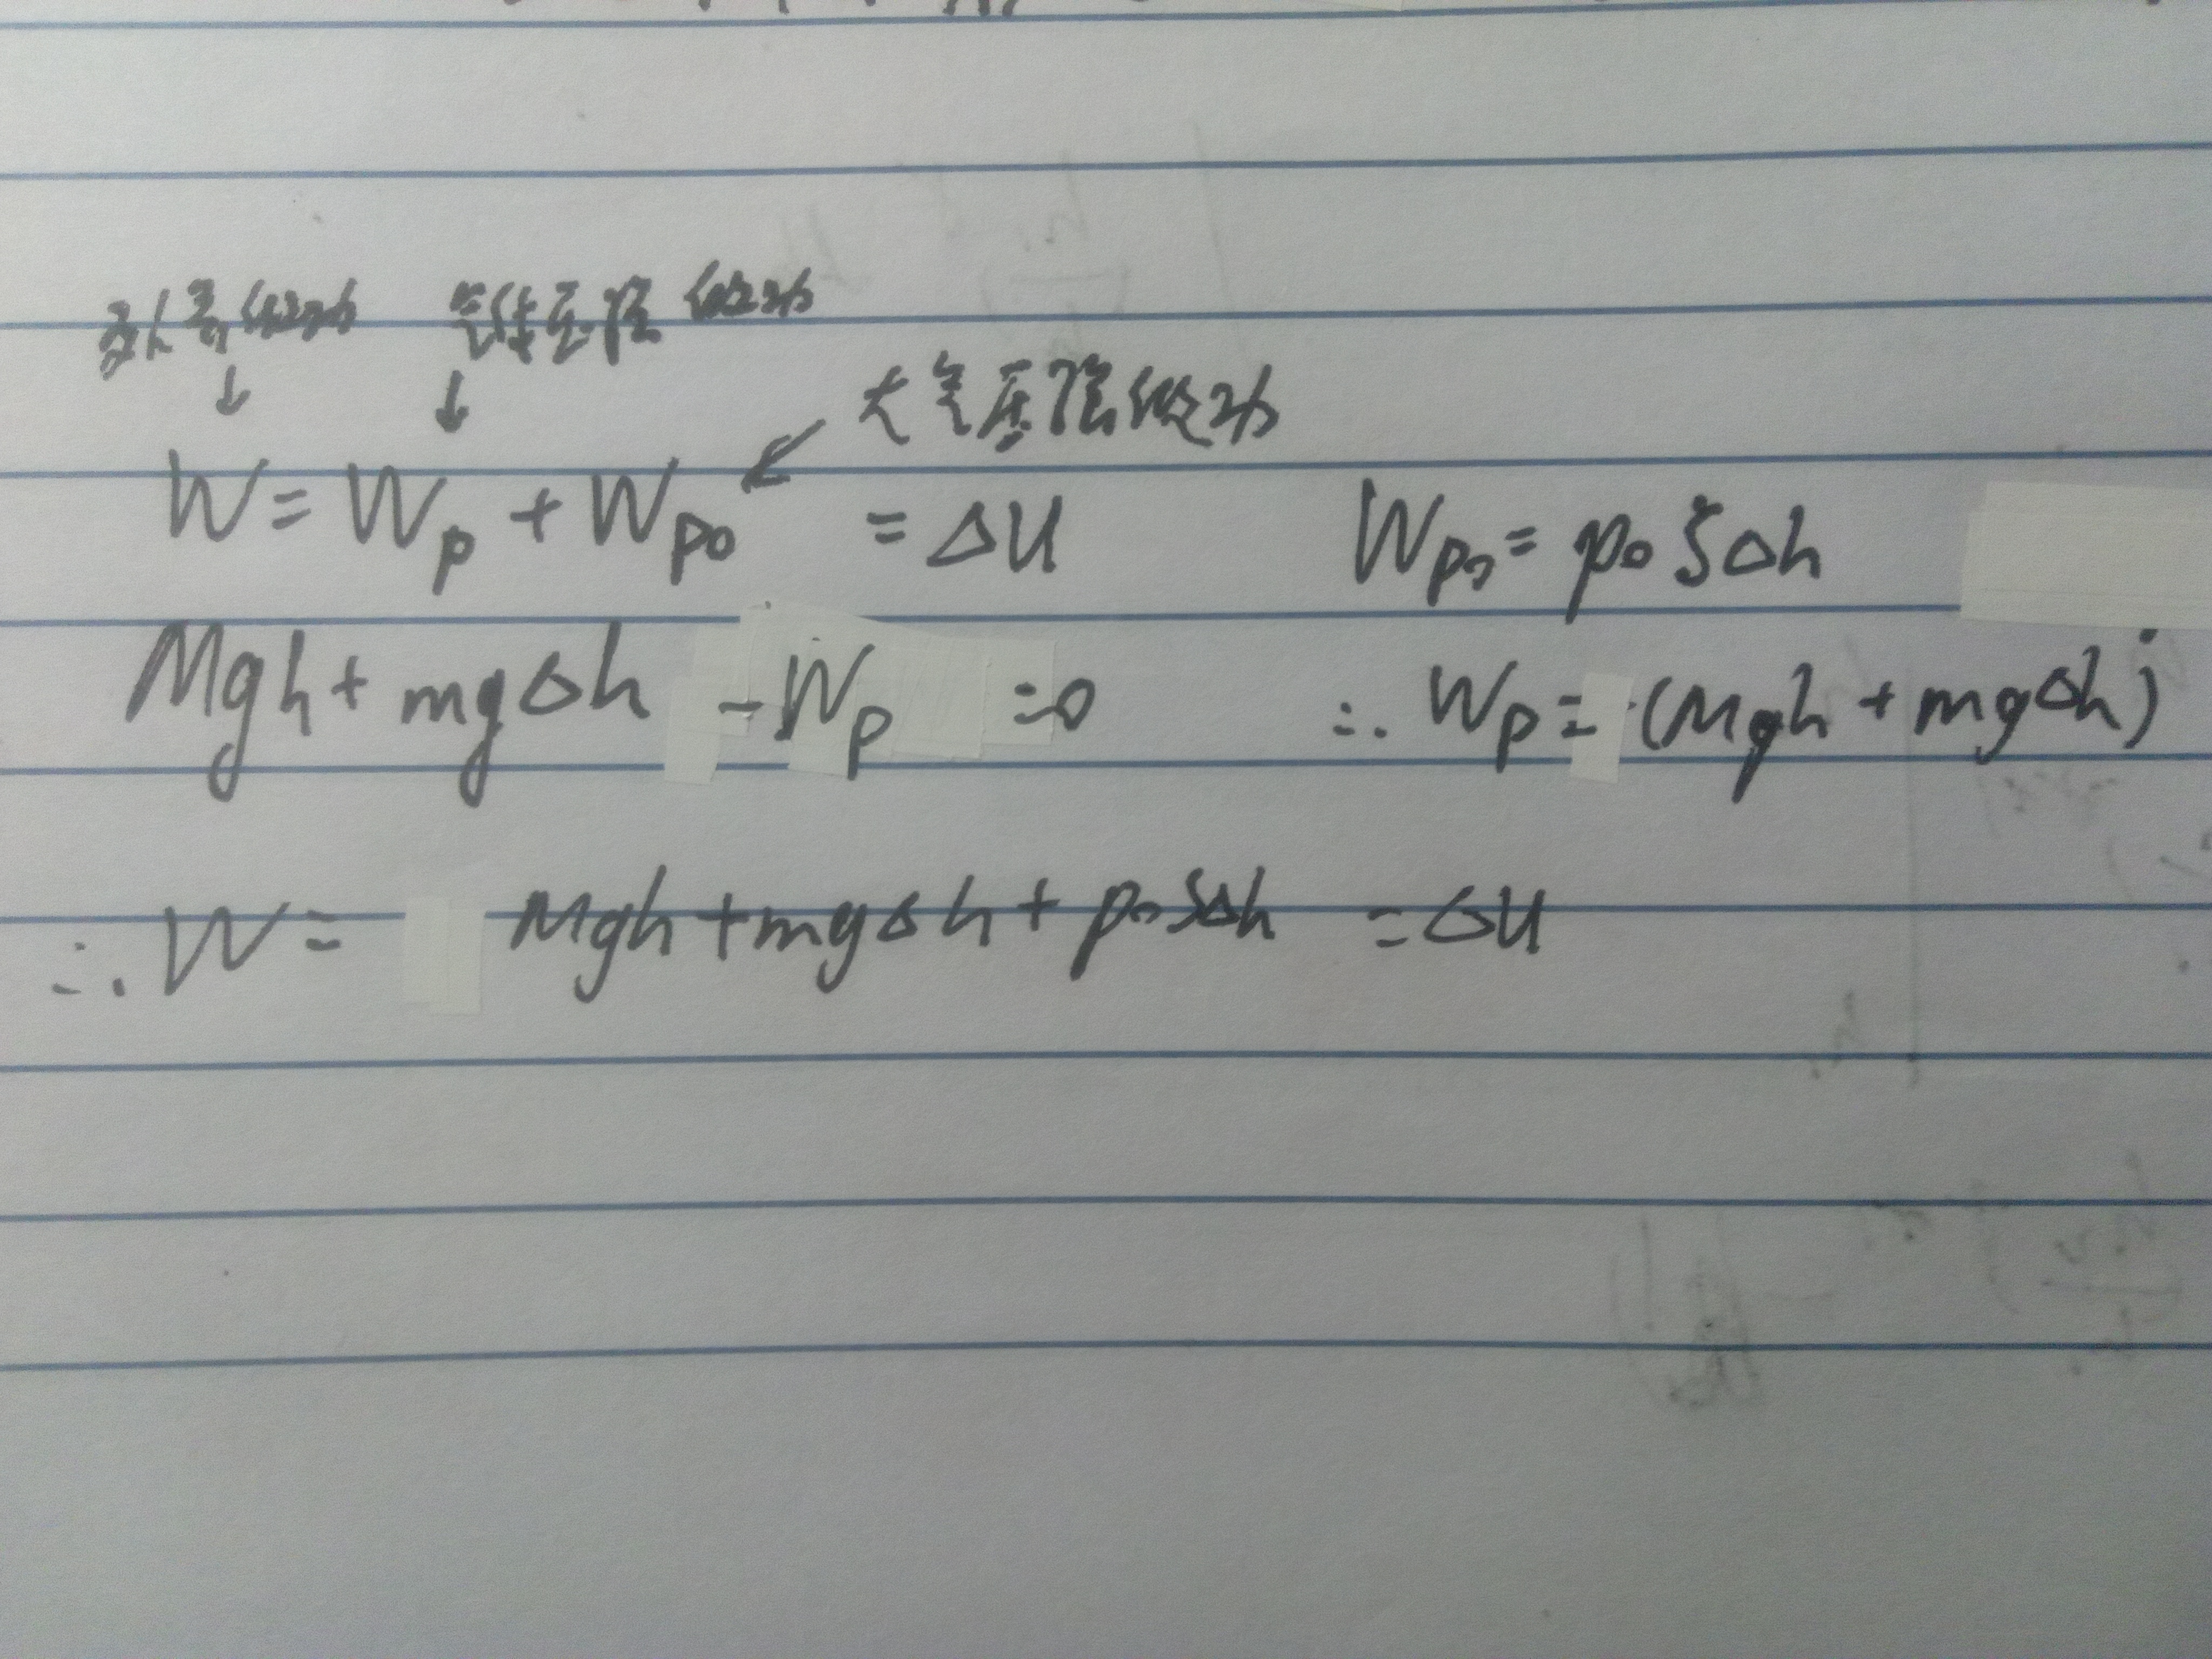 对气体做功 气体压强做功
↓ ↓ 大气压强做功
W = Wp + Wp₀ ↙ = ΔU Wp₀ = p₀SΔh
Mgh + mgΔh - Wp = 0 ∴ Wp = (Mgh + mgΔh)
∴ W = Mgh + mgΔh + p₀SΔh = ΔU